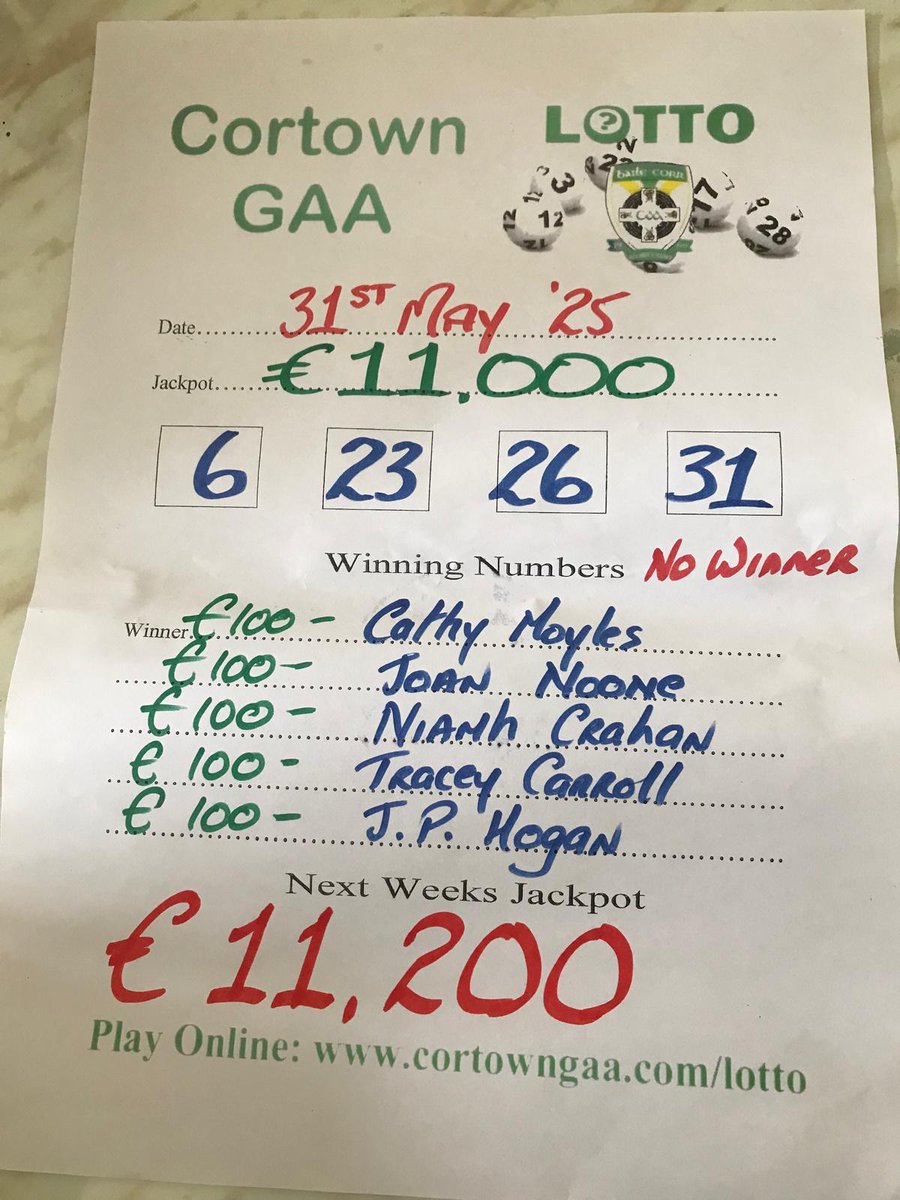 Cortown
GAA
LOTTO
baile CORR
GAA
12
3
17
28
Date 31ST MAY '25
Jackpot €11,000
6 23 26 31
Winning Numbers NO WINNER
Winner €100 - Cathy Moyles
€100 - JOAN NOONE
€100 - NIAMH CRAHAN
€100 - TRACEY CARROLL
€100 - J.P. HOGAN
Next Weeks Jackpot
€11,200
Play Online: www.cortowngaa.com/lotto